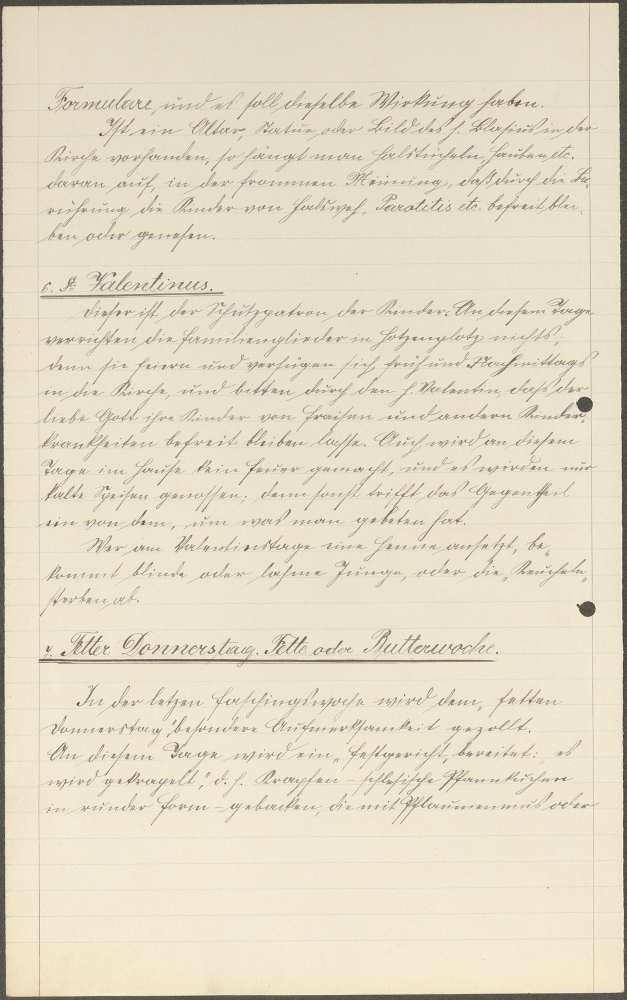 Formulare, und es soll dieselbe Wirkung haben.
Ist ein Altar, Statue oder Bild des h. Blasius in der
Kirche vorhanden, so hängt man Halstücheln, Hauben, etc.
daran auf, in der frommen Meinung, daß durch die Be-
rührung die Kinder von Halsweh, Parotitis etc. befreit blei-
ben oder genesen.
6. St. Valentinus.
Dieser ist der Schutzpatron der Kinder. An diesem Tage
verrichten die Familienglieder in Hotzenplotz nichts;
denn sie feiern und verfügen sich früh und Nachmittags
in die Kirche, und bitten durch den h. Valentin, daß der
liebe Gott ihre Kinder von Fraisen und andern Kinder-
krankheiten befreit bleiben lasse. Auch wird an diesem
Tage im Hause kein Feuer gemacht, und es werden nur
kalte Speisen genossen; denn sonst trifft das Gegentheil
ein von dem, um was man gebeten hat.
Wer am Valentinstage eine Henne ansetzt, be-
kommt blinde oder lahme Junge, oder die
sterben ab.
7. Fetter Donnerstag. Fette oder Butterwoche.
In der letzen Faschingswoche wird dem „fetten
Donnerstag" besondere Aufmerksamkeit gezollt.
An diesem Tage wird ein „Festgericht" bereitet: „es
wird gekrapelt", d. h. Krapfen – schlesische Pfannkuchen
in runder Form – gebacken, die mit Pflaumenmus oder